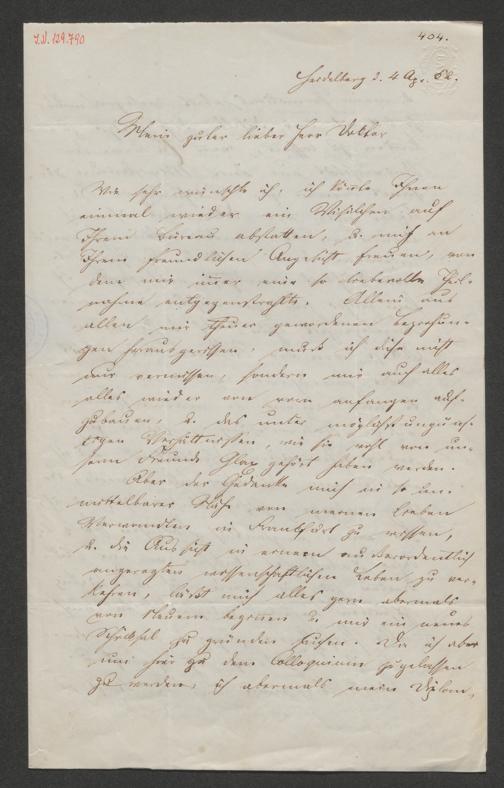 I.N. 129.790
404.
Heidelberg d. 4 Ap. 62.
Mein guter lieber Herr Doktor
Wie sehr wünschte ich, ich könnte Ihnen
einmal wieder ein Visitchen auf
Ihrem Bureau abstatten, u. mich an
Ihrem freundlichen Angesicht freuen, von
dem mir immer eine so liebevolle Theil-
nahme entgegenstrahlte. Allein aus
allen mir theuer gewordenen Beziehun-
gen herausgerissen, muß ich diese nicht
nur vermissen, sondern mir auch alles
alles wieder von vorn anfangen auf-
zubauen, u. das unter möglichst ungünst-
igen Verhältnissen, wie Sie wohl von un-
serm Freunde Glax gehört haben werden.
Aber der Gedanke mich in so un-
mittelbarer Nähe von meinen lieben
Verwandten in Frankfurt zu wissen,
u. die Aussicht in einem außerordentlich
angeregten wissenschaftlichen Leben zu ver-
kehren, läßt mich alles gern abermals
von Neuem beginnen u. mir ein neues
Schicksal zu gründen suchen. Da ich aber
um hier zu dem Colloquium zugelassen
zu werden, ich abermals mein Diplom,